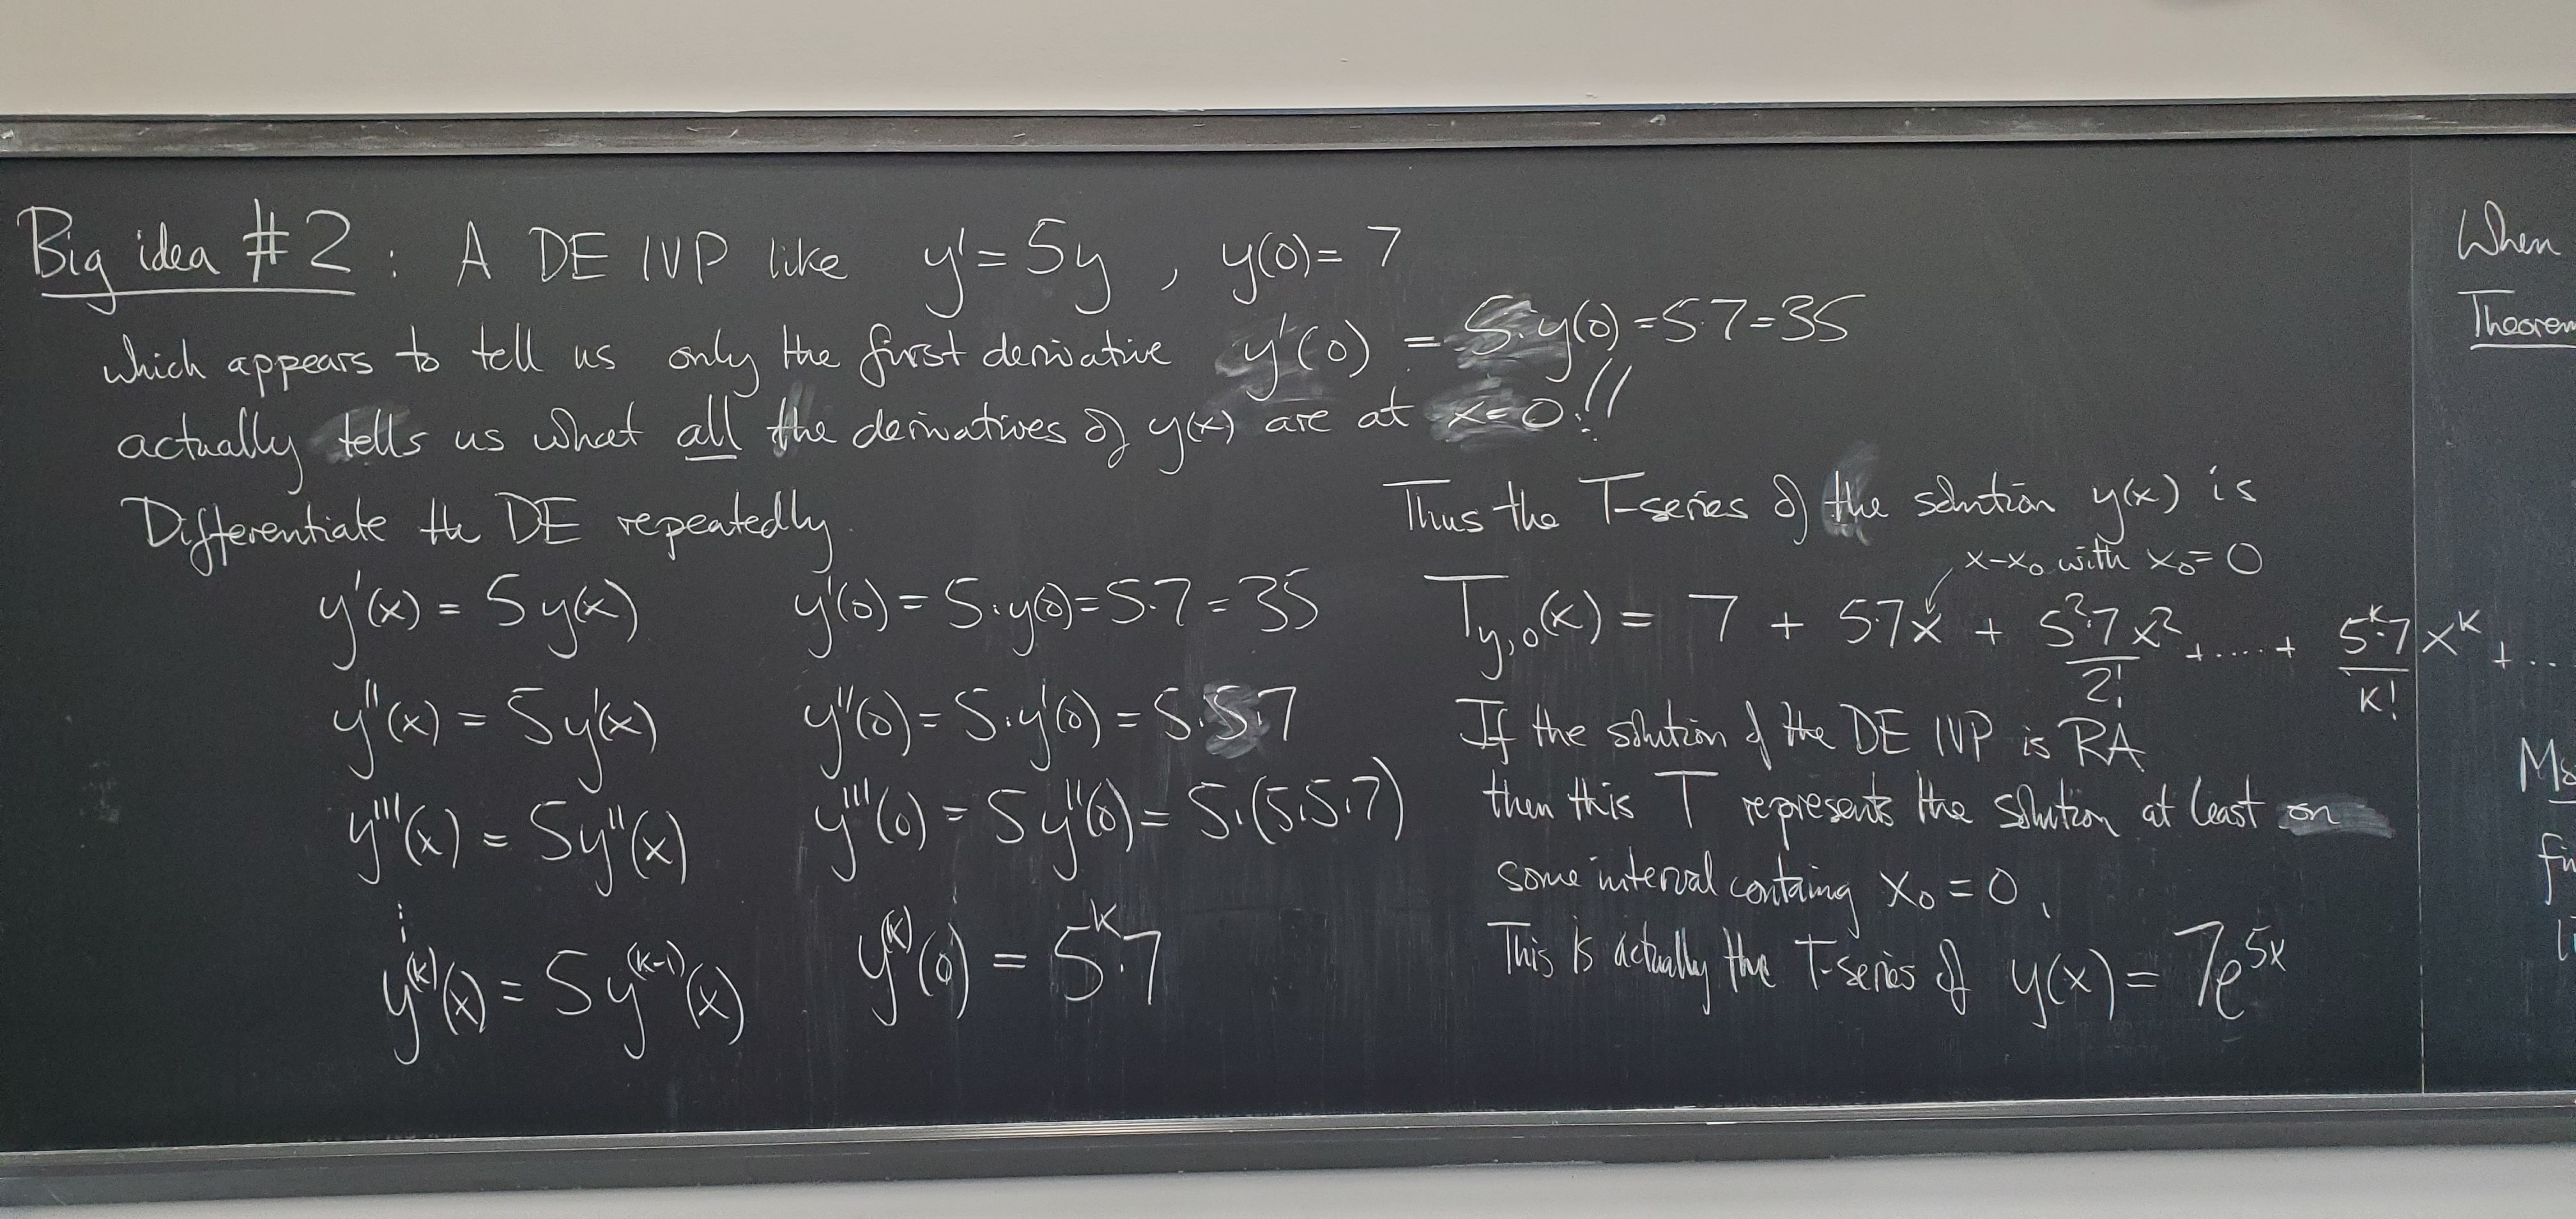 Big idea #2 : A DE IVP like y' = 5y , y(0) = 7
which appears to tell us only the first derivative y'(0) = 5·y(0) = 5·7 = 35
actually tells us what all the derivatives of y(x) are at x=0!!
Differentiate the DE repeatedly.
y'(x) = 5y(x) y'(0) = 5·y(0) = 5·7 = 35
y''(x) = 5y'(x) y''(0) = 5·y'(0) = 5·5·7
y'''(x) = 5y''(x) y'''(0) = 5y''(0) = 5·(5·5·7)
⋮
y^(k)(x) = 5y^(k-1)(x) y^(k)(0) = 5^k·7
Thus the T-series of the solution y(x) is
x-x₀ with x₀=0
T_{y,0}(x) = 7 + 5·7x + 5²·7/2! x² + ..... + 5^k·7/k! x^k + ...
If the solution of the DE IVP is RA
then this T represents the solution at least on
some interval containg x₀ = 0.
This is actually the T-series of y(x) = 7e^{5x}
When
Theorem